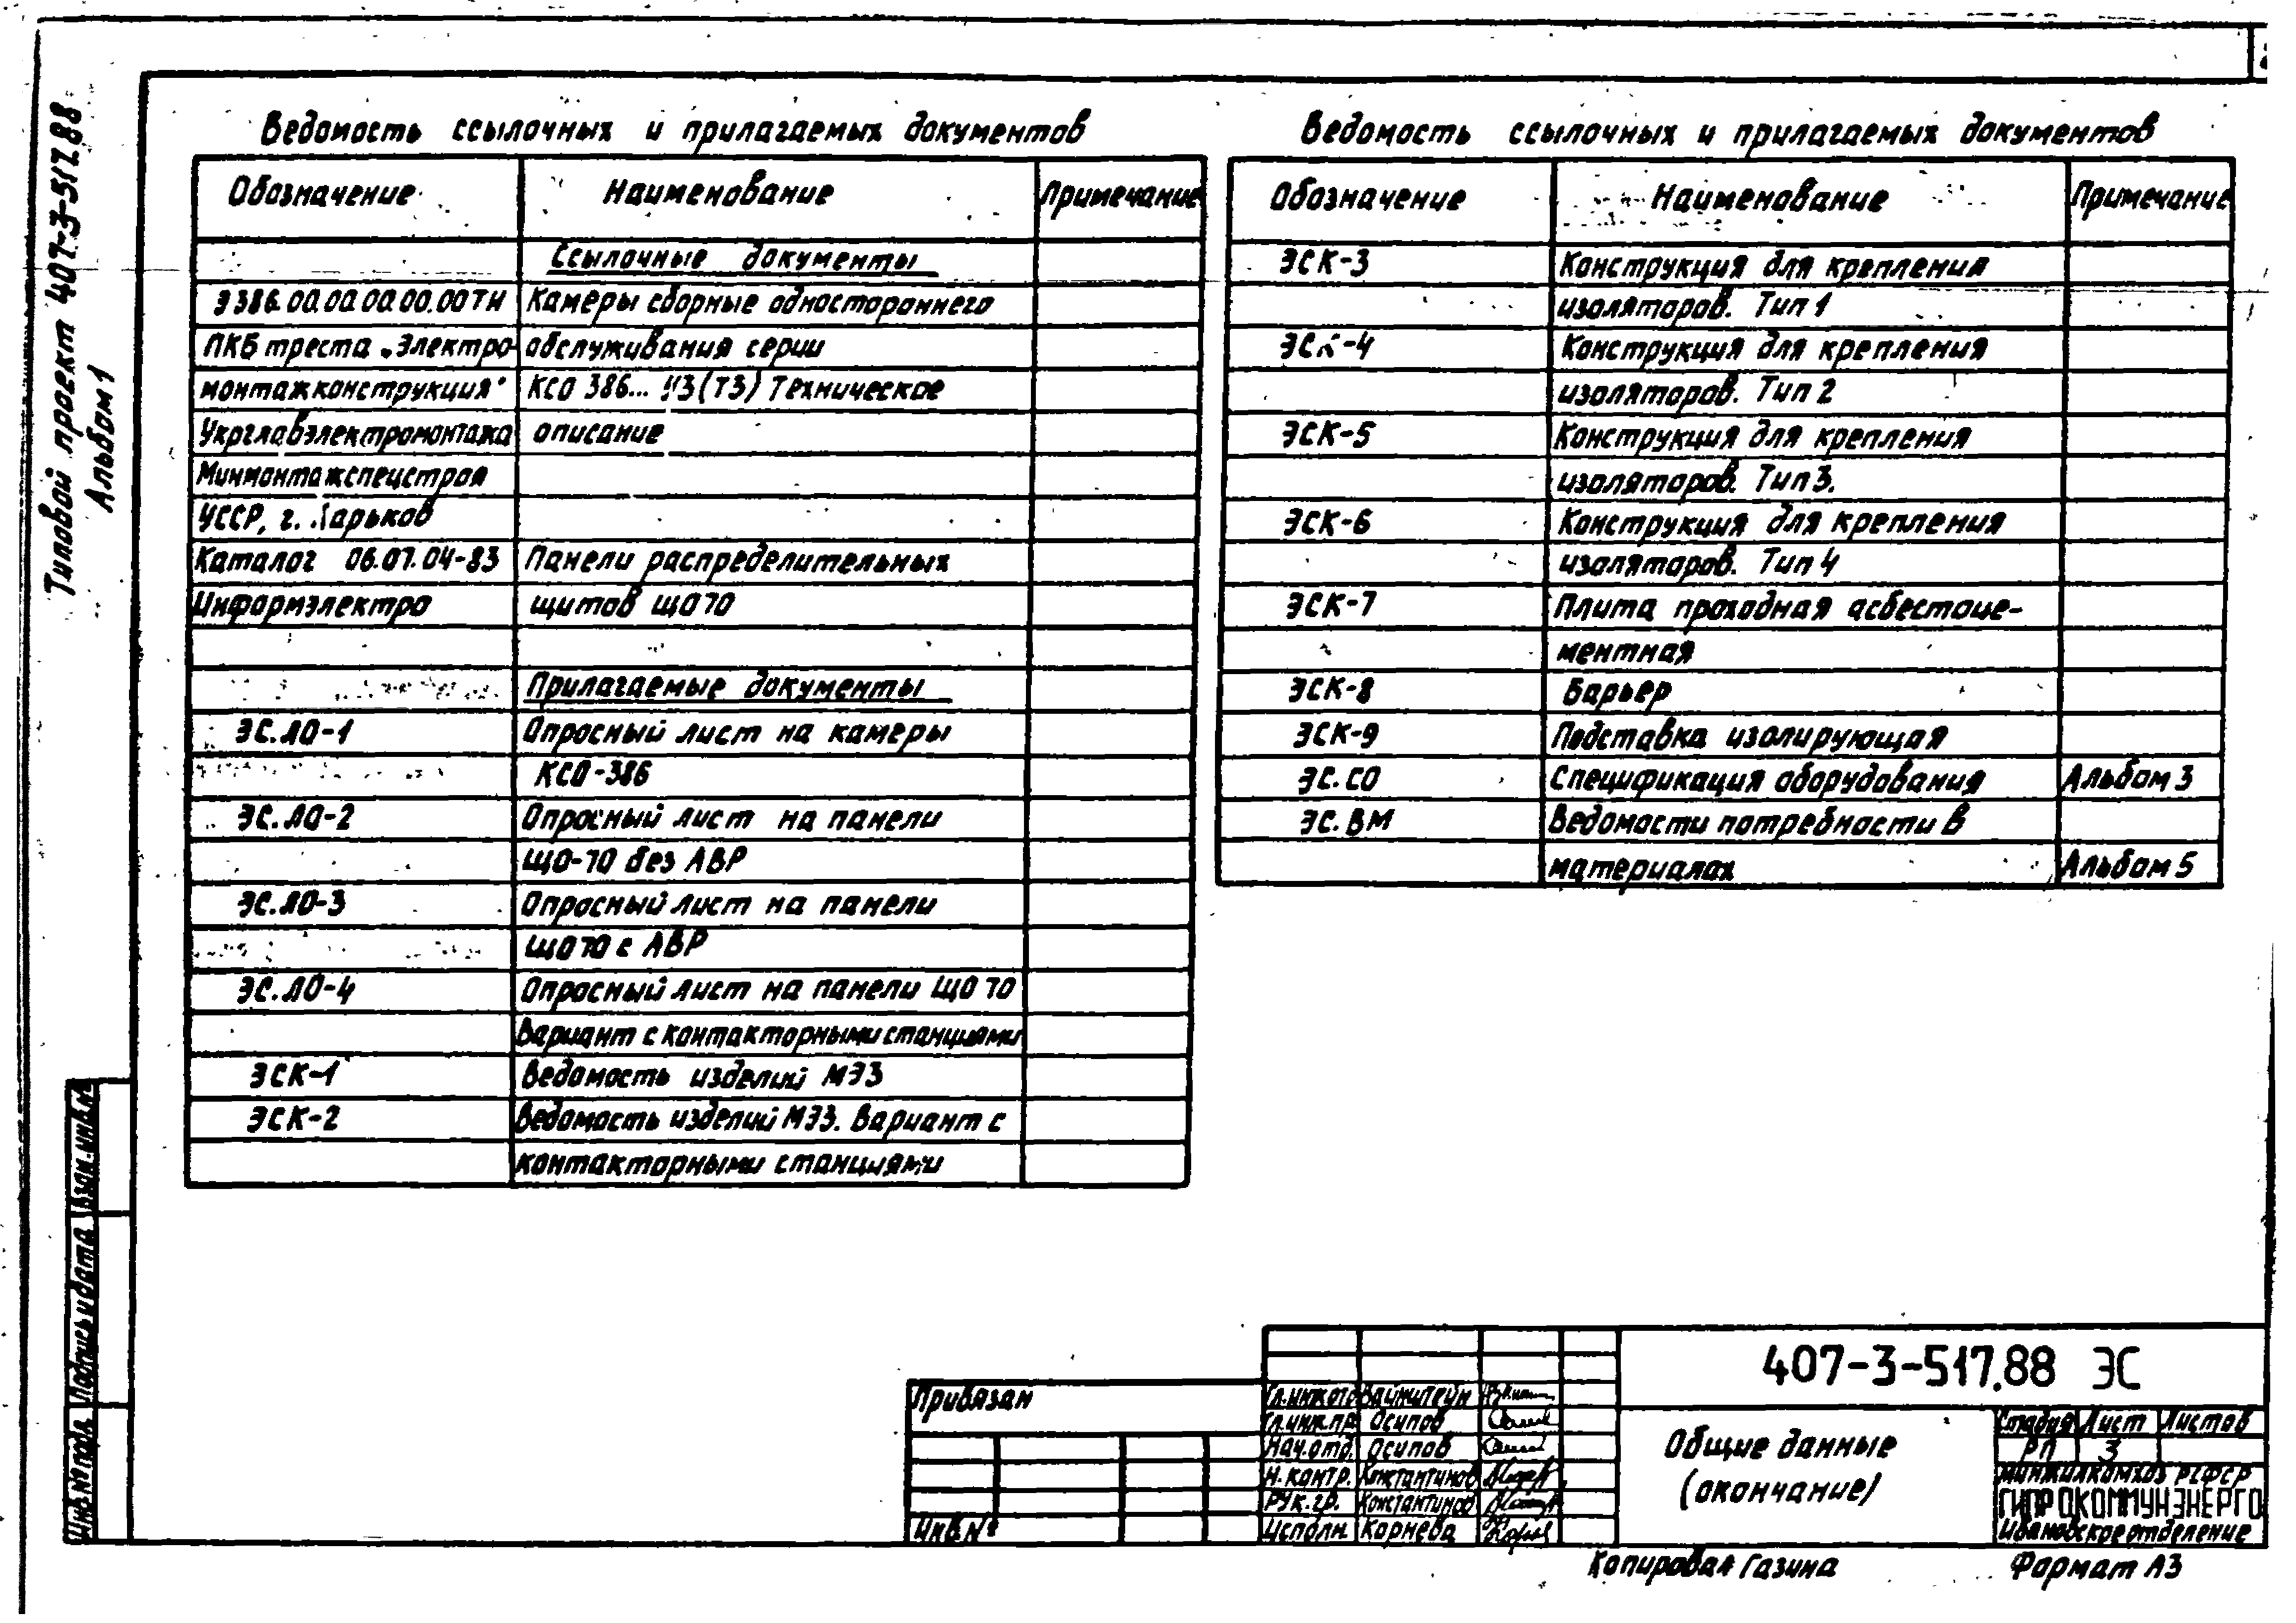 Типовой проект 407-3-517.88
Альбом 1
Ведомость ссылочных и прилагаемых документов
Обозначение Наименование Примечание
Ссылочные документы
Э386.00.00.00.00.00ТИ Камеры сборные одностороннего
ПКБ треста „Электро- обслуживания серии
монтажконструкция" КСО 386... У3(Т3) Техническое
Укрглавэлектромонтажа описание
Минмонтажспецстроя
УССР, г. Харьков
Каталог 06.07.04-83 Панели распределительных
Информэлектро щитов ЩО70
Прилагаемые документы
ЭС.ЛО-1 Опросный лист на камеры
КСО-386
ЭС.ЛО-2 Опросный лист на панели
ЩО-70 без АВР
ЭС.ЛО-3 Опросный лист на панели
ЩО70 с АВР
ЭС.ЛО-4 Опросный лист на панели ЩО 70
Вариант с контакторными станциями
ЭСК-1 Ведомость изделий МЭЗ
ЭСК-2 Ведомость изделий МЭЗ. Вариант с
контакторными станциями
Ведомость ссылочных и прилагаемых документов
Обозначение Наименование Примечание
ЭСК-3 Конструкция для крепления
изоляторов. Тип 1
ЭСК-4 Конструкция для крепления
изоляторов. Тип 2
ЭСК-5 Конструкция для крепления
изоляторов. Тип 3.
ЭСК-6 Конструкция для крепления
изоляторов. Тип 4
ЭСК-7 Плита проходная асбестоце-
ментная
ЭСК-8 Барьер
ЭСК-9 Подставка изолирующая
ЭС.СО Спецификация оборудования Альбом 3
ЭС.ВМ Ведомости потребности в
материалах Альбом 5
Взам.инв.№
Подпись и дата
Инв.№ подл.
Привязан
Инв.№
Гл.инж.отд. Вайнштейн
Гл.инж.пр. Осипов
Нач.отд. Осипов
Н.контр. Константинов
Рук.гр. Константинов
Исполн. Корнева
407-3-517.88 ЭС
Общие данные
(окончание)
Стадия Лист Листов
РП 3
Минжилкомхоз РСФСР
ГИПРОКОММУНЭНЕРГО
Ивановское отделение
Копировал Газина Формат А3